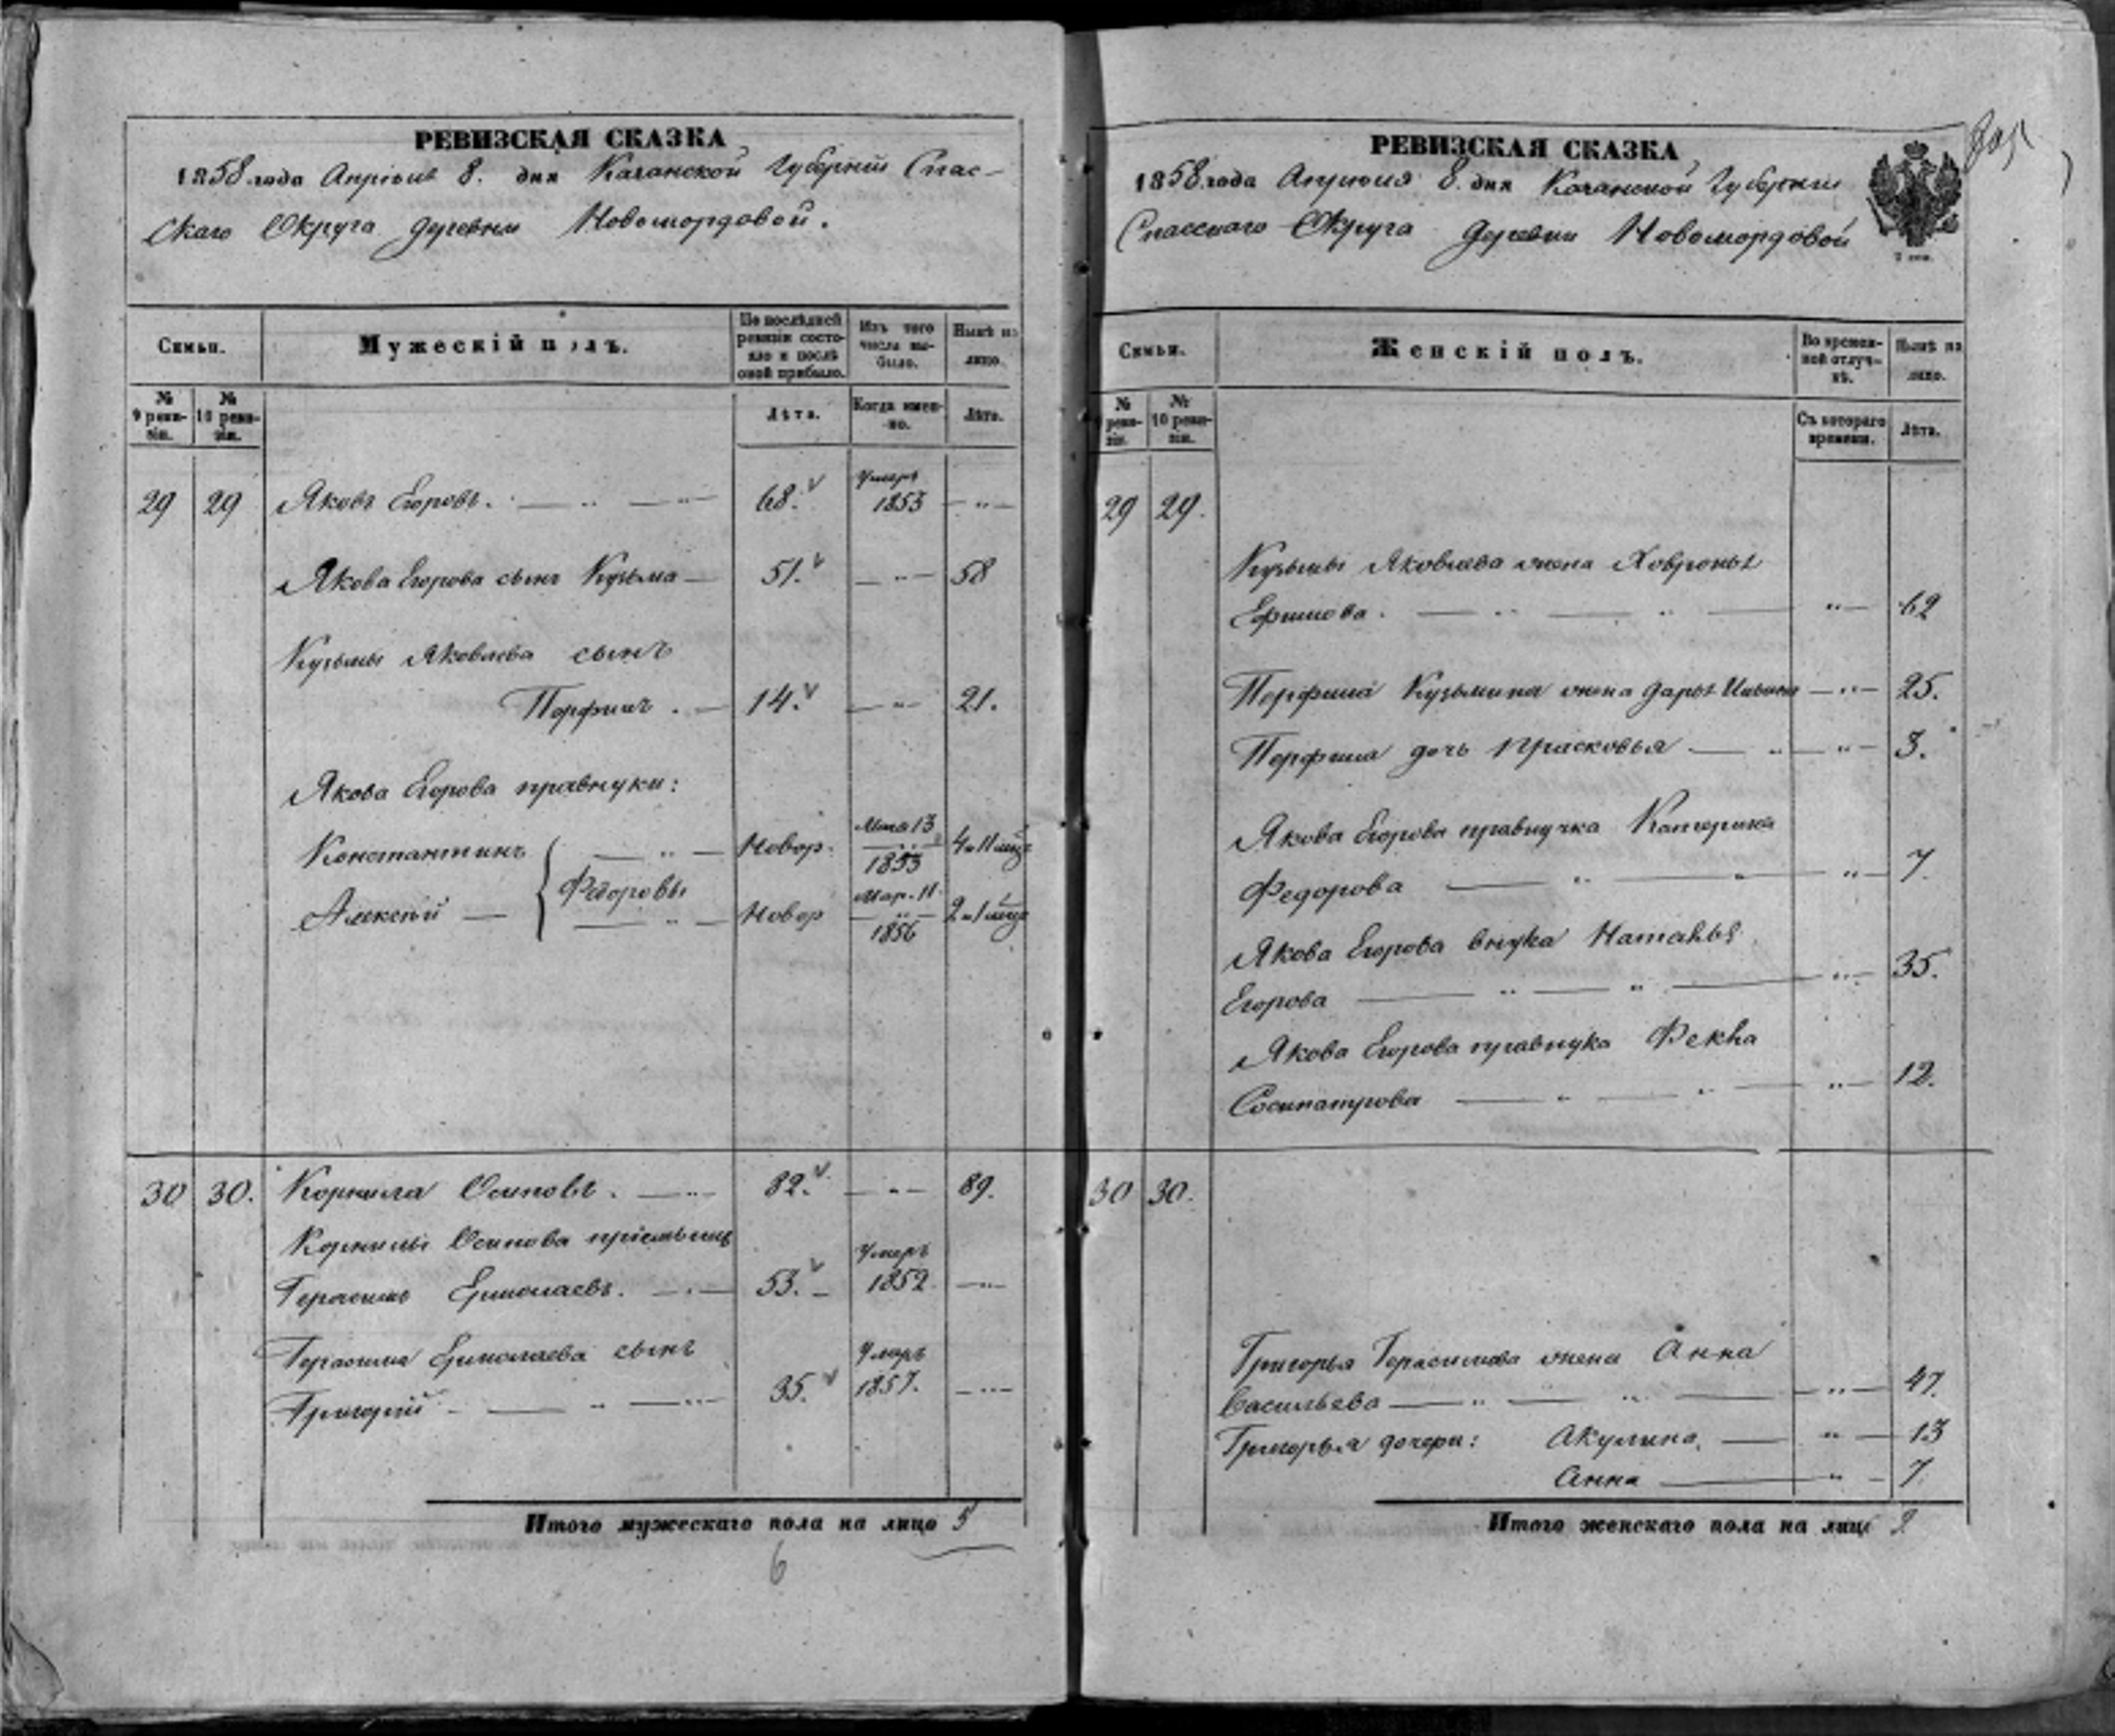 РЕВИЗСКАЯ СКАЗКА
1858 года Апреля 8. дня Казанской Губернiи Спас-
скаго Округа деревни Новомордовой.
Семьи.
Мужескiй полъ.
По послѣдней ревизiи состо-яло и послѣ оной прибыло.
Изъ того числа вы-было.
Нынѣ на лицо.
№ 9 реви-зiи.
№ 10 реви-зiи.
Лѣта.
Когда имен-но.
Лѣта.
29 29 Яковъ Егоровъ. 68. Умеръ 1853
Якова Егорова сынъ Кузьма 51. 58
Кузьмы Яковлева сынъ
Порфилъ 14. 21.
Якова Егорова правнуки:
Константинъ Новор. Маiя 13 1853 4 и 11 мѣц
Федоровы
Алексѣй Новор Мар. 11. 1856 2 и 1 мѣц
30 30. Корнила Осиповъ. 82. 89.
Корнилы Осипова прiемышъ
Герасимъ Ермолаевъ. 53. Умеръ 1852
Герасима Ермолаева сынъ
Григорiй 35. Умеръ 1857.
Итого мужескаго пола на лицо 5
6
РЕВИЗСКАЯ СКАЗКА
1858 года Апреля 8. дня Казанской Губернiи
Спасскаго Округа деревни Новомордовой
2 коп.
Семьи.
Женскiй полъ.
Во времен-ной отлуч-кѣ.
Нынѣ на лицо.
№ 9 реви-зiи.
№ 10 реви-зiи.
Съ котораго времени.
Лѣта.
29 29.
Кузьмы Яковлева жена Ховронья
Ефимова. 62
Порфила Кузьмина жена Дарья Ильина 25.
Порфила дочь Прасковья 3.
Якова Егорова правнучка Катерина
Федорова 7.
Якова Егорова внука Наталья
Егорова 35.
Якова Егорова правнука Фекла
Сосипатрова 12.
30 30.
Григорья Герасимова жена Анна
Васильева 47.
Григорья дочери: Акулина, 13
Анна 7.
Итого женскаго пола на лицо 9